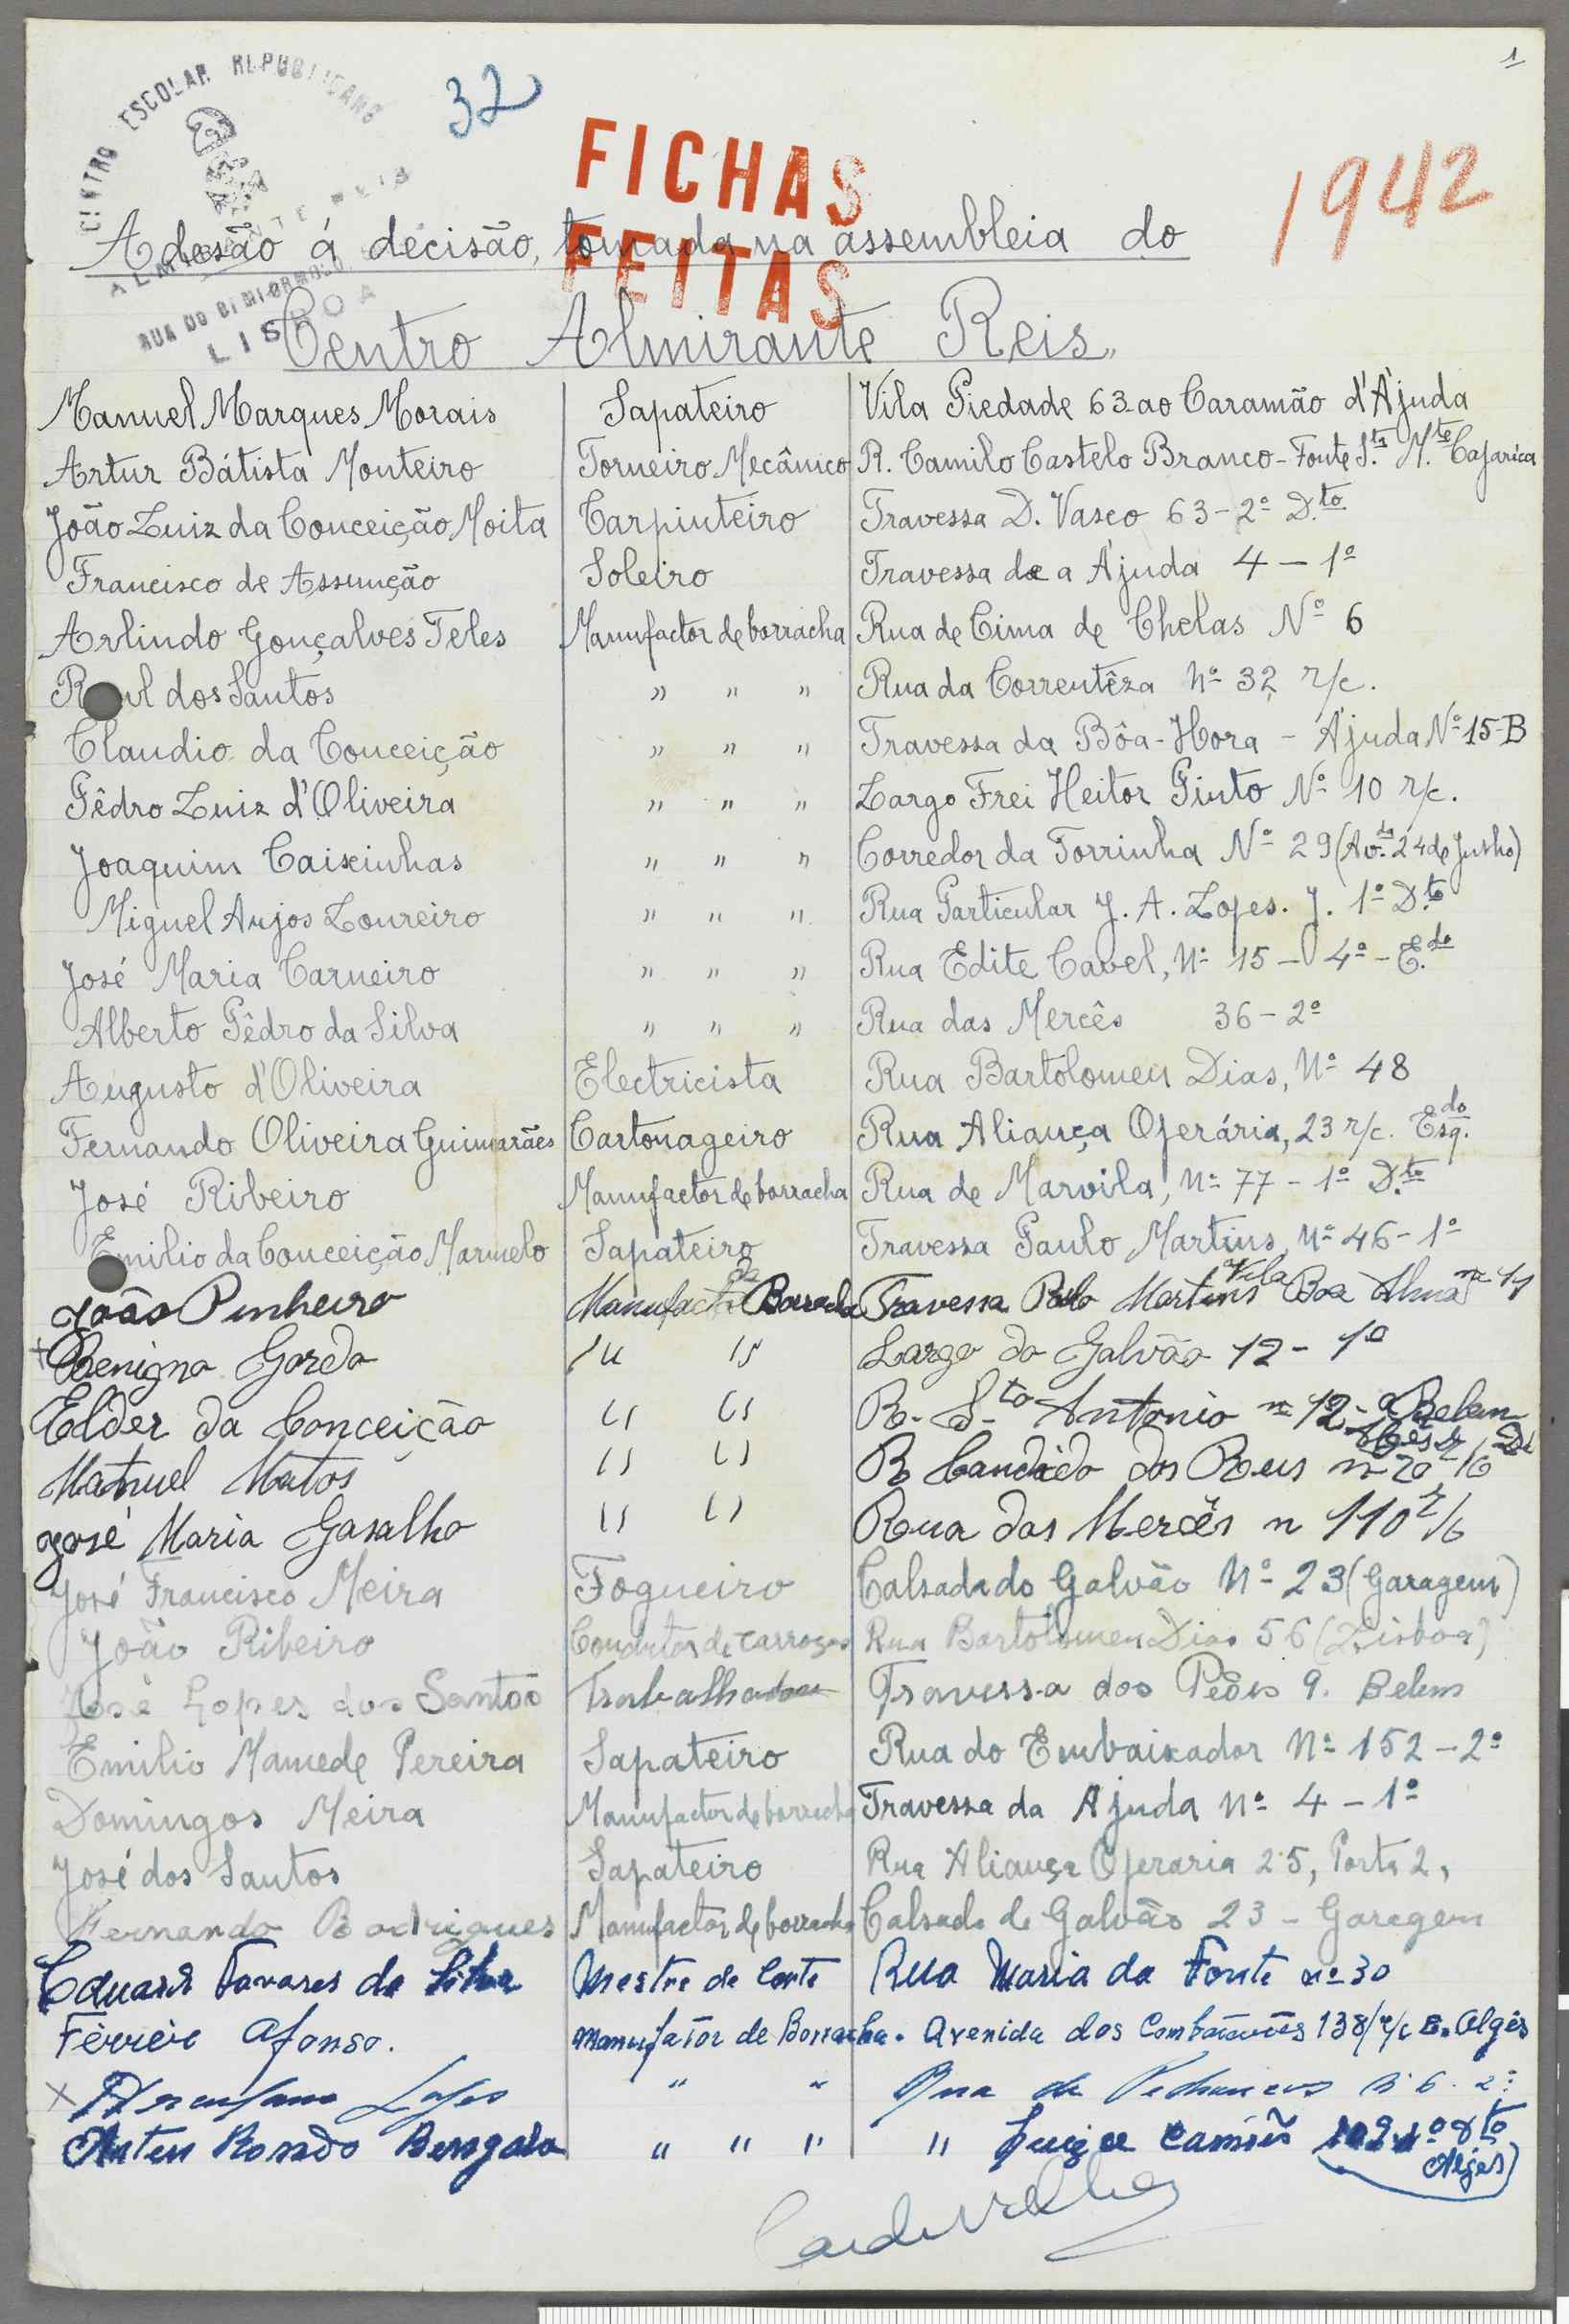 1
CENTRO ESCOLAR REPUBLICANO
ALMIRANTE REIS
RUA DO BEMFORMOSO
LISBOA
32
FICHAS
FEITAS
1942
Adesão á decisão, tomada na assembleia do
Centro Almirante Reis,,
Manuel Marques Morais Sapateiro Vila Piedade 63 ao Caramão d'Ájuda
Artur Bátista Monteiro Torneiro Mecânico R. Camilo Castelo Branco - Fonte S.ta M.te Cajarica
João Luiz da Conceição Moita Carpinteiro Travessa D. Vasco 63-2º D.to
Francisco de Assunção Soleiro Travessa da Ájuda 4-1º
Arlindo Gonçalves Teles Manufactor de borracha Rua de Cima de Chelas Nº 6
Raul dos Santos " " " Rua da Correntêza Nº 32 r/c.
Claudio da Conceição " " " Travessa da Bôa-Hora - Ájuda Nº 15-B
Pêdro Luiz d'Oliveira " " " Largo Frei Heitor Pinto Nº 10 r/c.
Joaquim Caixinhas " " " Corredor da Torrinha Nº 29 (Av.da 24 de Julho)
Miguel Anjos Loureiro " " " Rua Particular J. A. Lopes. J. 1º D.to
José Maria Carneiro " " " Rua Edite Cavel, Nº 15 - 4º - E.do
Alberto Pêdro da Silva " " " Rua das Mercês 36-2º
Augusto d'Oliveira Electricista Rua Bartolomeu Dias, Nº 48
Fernando Oliveira Guimarães Cartonageiro Rua Aliança Operária, 23 r/c. Esq.do
José Ribeiro Manufactor de borracha Rua de Marvila, Nº 77-1º D.to
Emilio da Conceição Marmelo Sapateiro Travessa Paulo Martins, Nº 46-1º
João Pinheiro Manufactor de Borracha Travessa Paulo Martins Vila Boa Alma nº
+ Benigno Gordo " " Largo do Galvão 12-1º
Elder da Conceição " " R. S.to Antonio nº 12 Belem
Manuel Matos " " R Candido dos Reis nº 20
José Maria Gasalho " " Rua das Mercês n 110 r/c
José Francisco Meira Fogueiro Calsada do Galvão Nº 23 (Garagem)
João Ribeiro Condutor de carroças Rua Bartolomeu Dias 56 (Lisboa)
José Lopes dos Santos Trabalhador Travessa dos Peões 9. Belem
Emilio Mamede Pereira Sapateiro Rua do Embaixador Nº 152-2º
Domingos Meira Manufactor de borracha Travessa da Ajuda Nº 4-1º
José dos Santos Sapateiro Rua Aliança Operaria 25, Porta 2,
Fernando Rodrigues Manufactor de borracha Calsada de Galvão 23 - Garagem
Eduardo Tavares da Silva Mestre de Corte Rua Maria da Fonte nº 30
Ferrer Afonso. Manufator de Borracha. Avenida dos Combatentes 138/r/c E. Algés
x Lopes " " Rua de Pedrouços Nº 6. 2º
Anten Rondo Bengala " " " " Luiz de Camões 1º dto
(Algés)